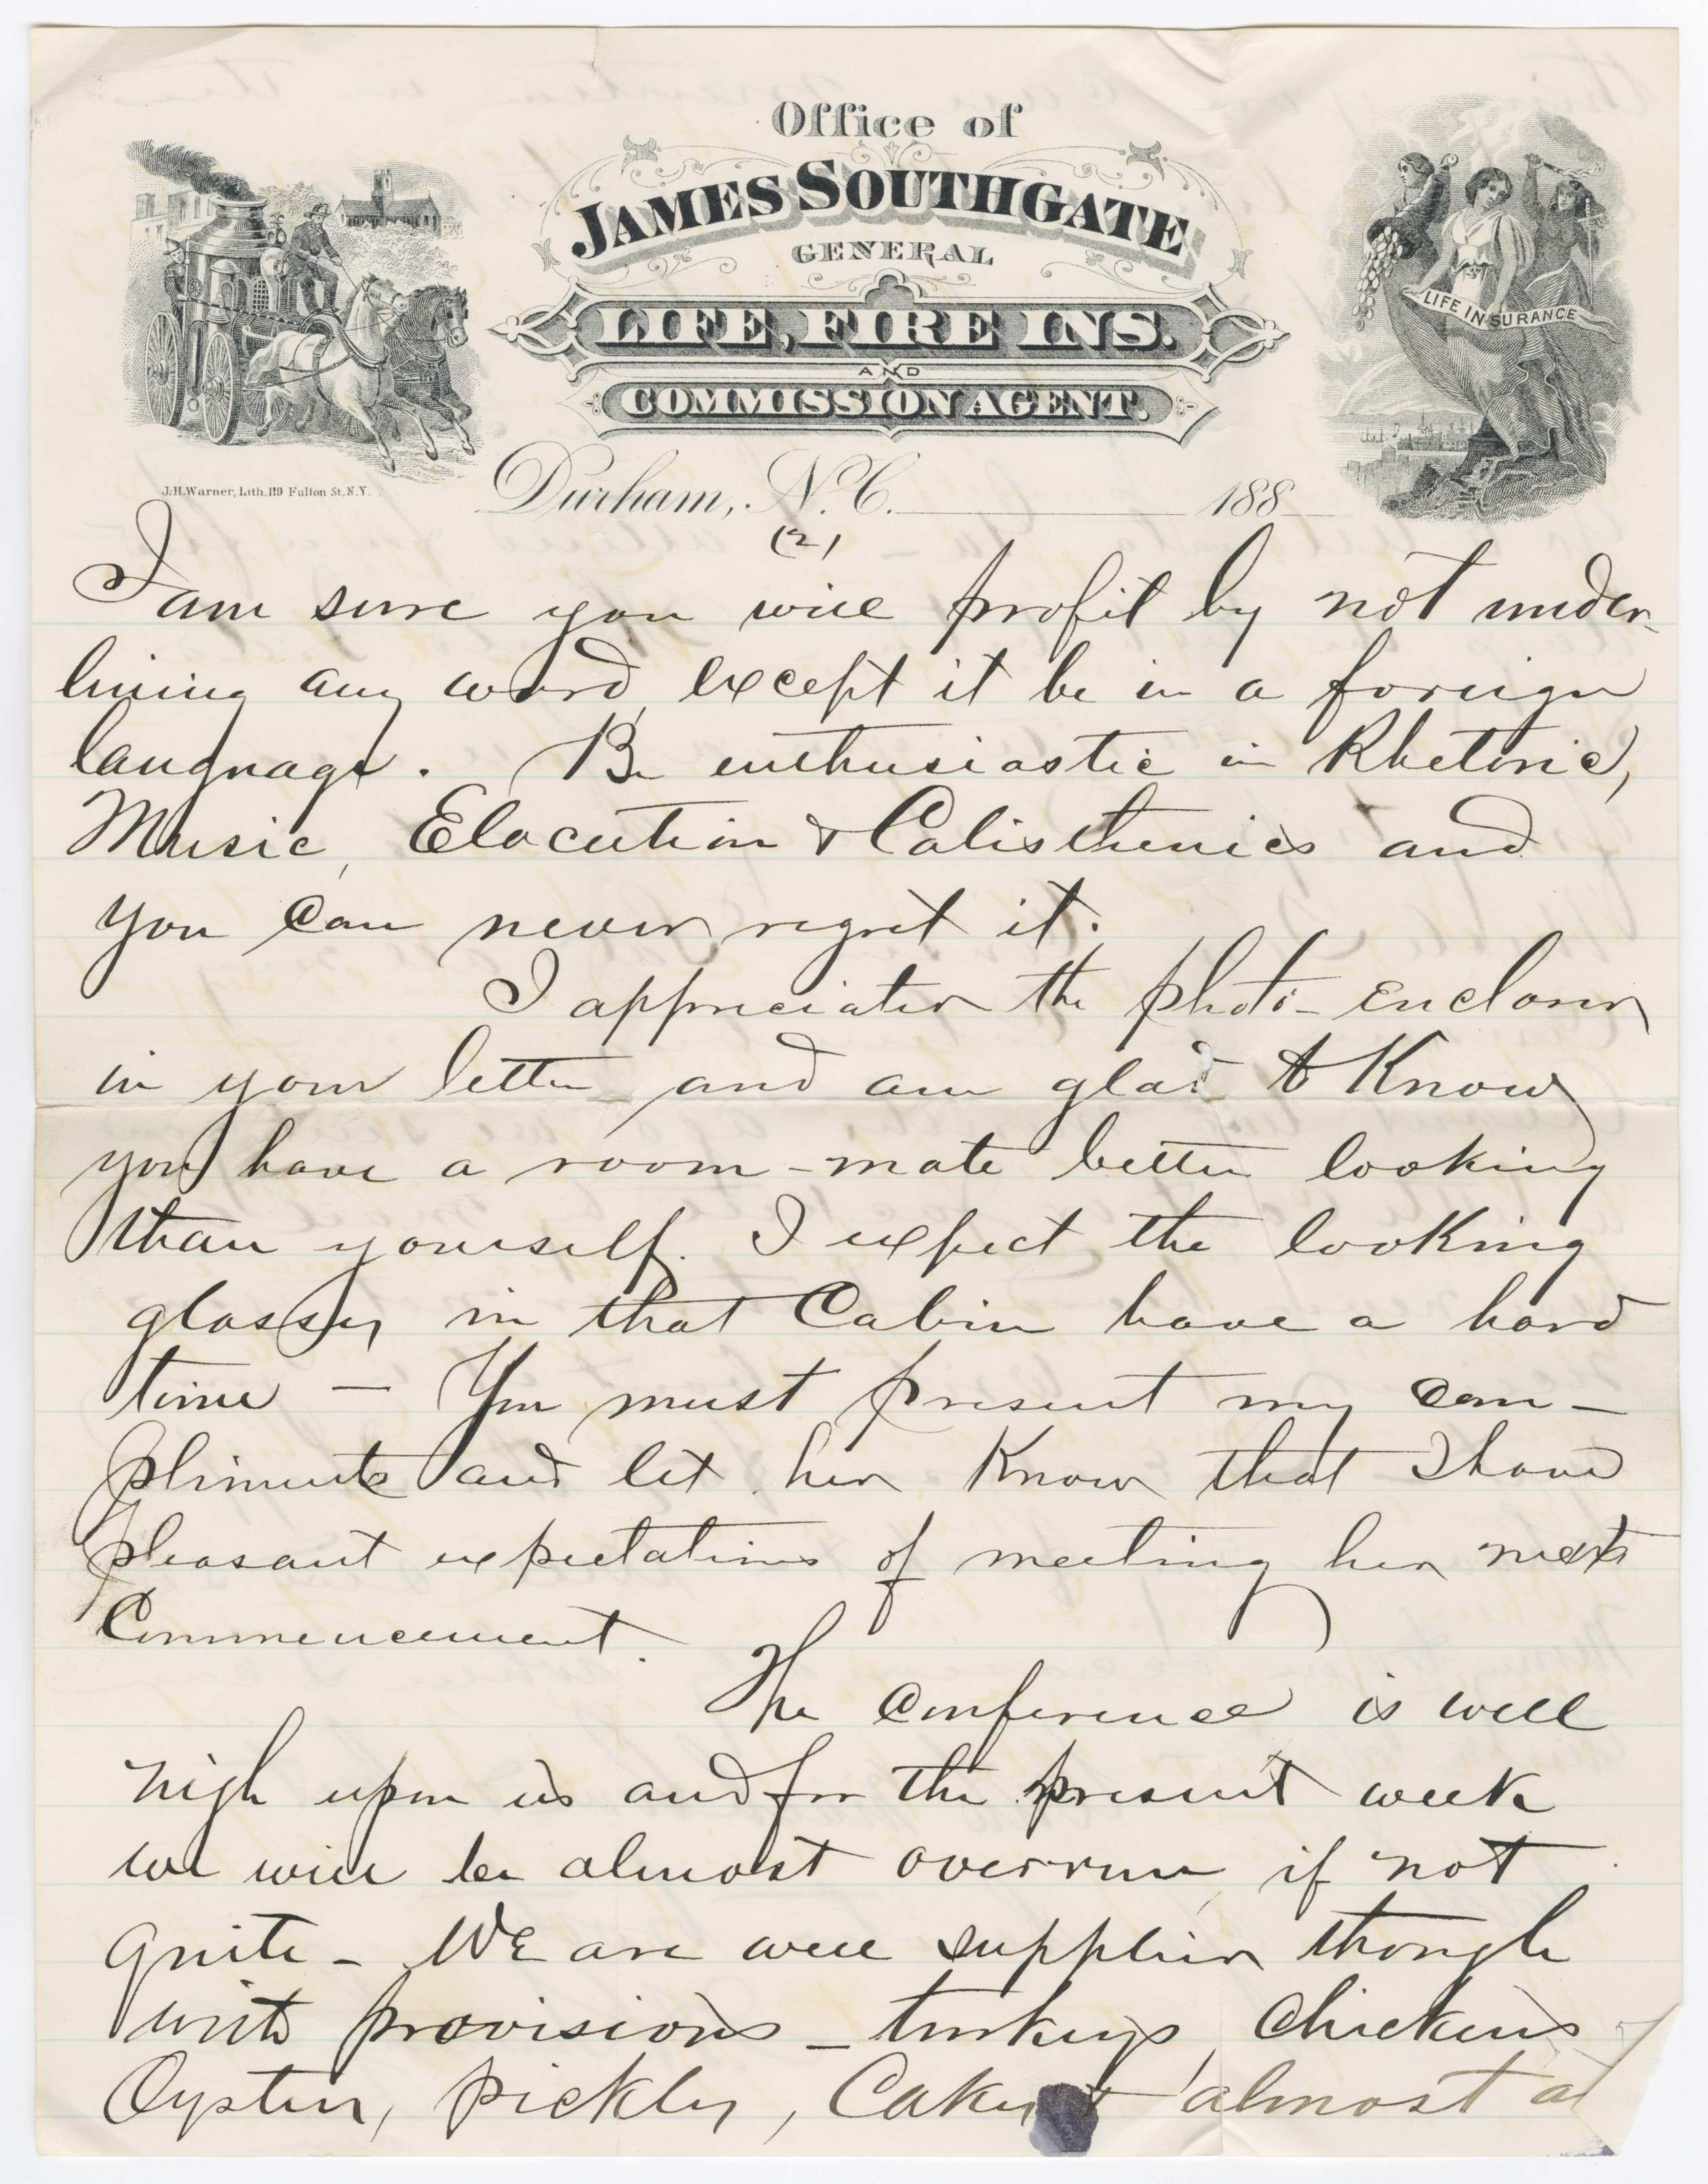 Office of
JAMES SOUTHGATE
GENERAL
LIFE, FIRE INS.
AND
COMMISSION AGENT.
LIFE INSURANCE
J.H. Warner, Lith. 119 Fulton St, N.Y.
Durham, N.C. 188
(2)
I am sure you will profit by not under-
lining any word, except it be in a foreign
language. Be enthusiastic in Rhetoric,
Music, Elocution & Calisthenics and
you can never regret it.
I appreciated the photo-enclosed
in your letter and am glad to Know
you have a room-mate better looking
than yourself. I expect the looking
glasses in that Cabin have a hard
time — You must present my com-
pliments and let her Know that I have
pleasant expectations of meeting her next
Commencement.
The Conference is well
nigh upon us and for the present week
we will be almost overrun, if not
quite - We are well supplied though
with provisions - turkeys, Chickens
Oysters, pickles, Cakes & almost